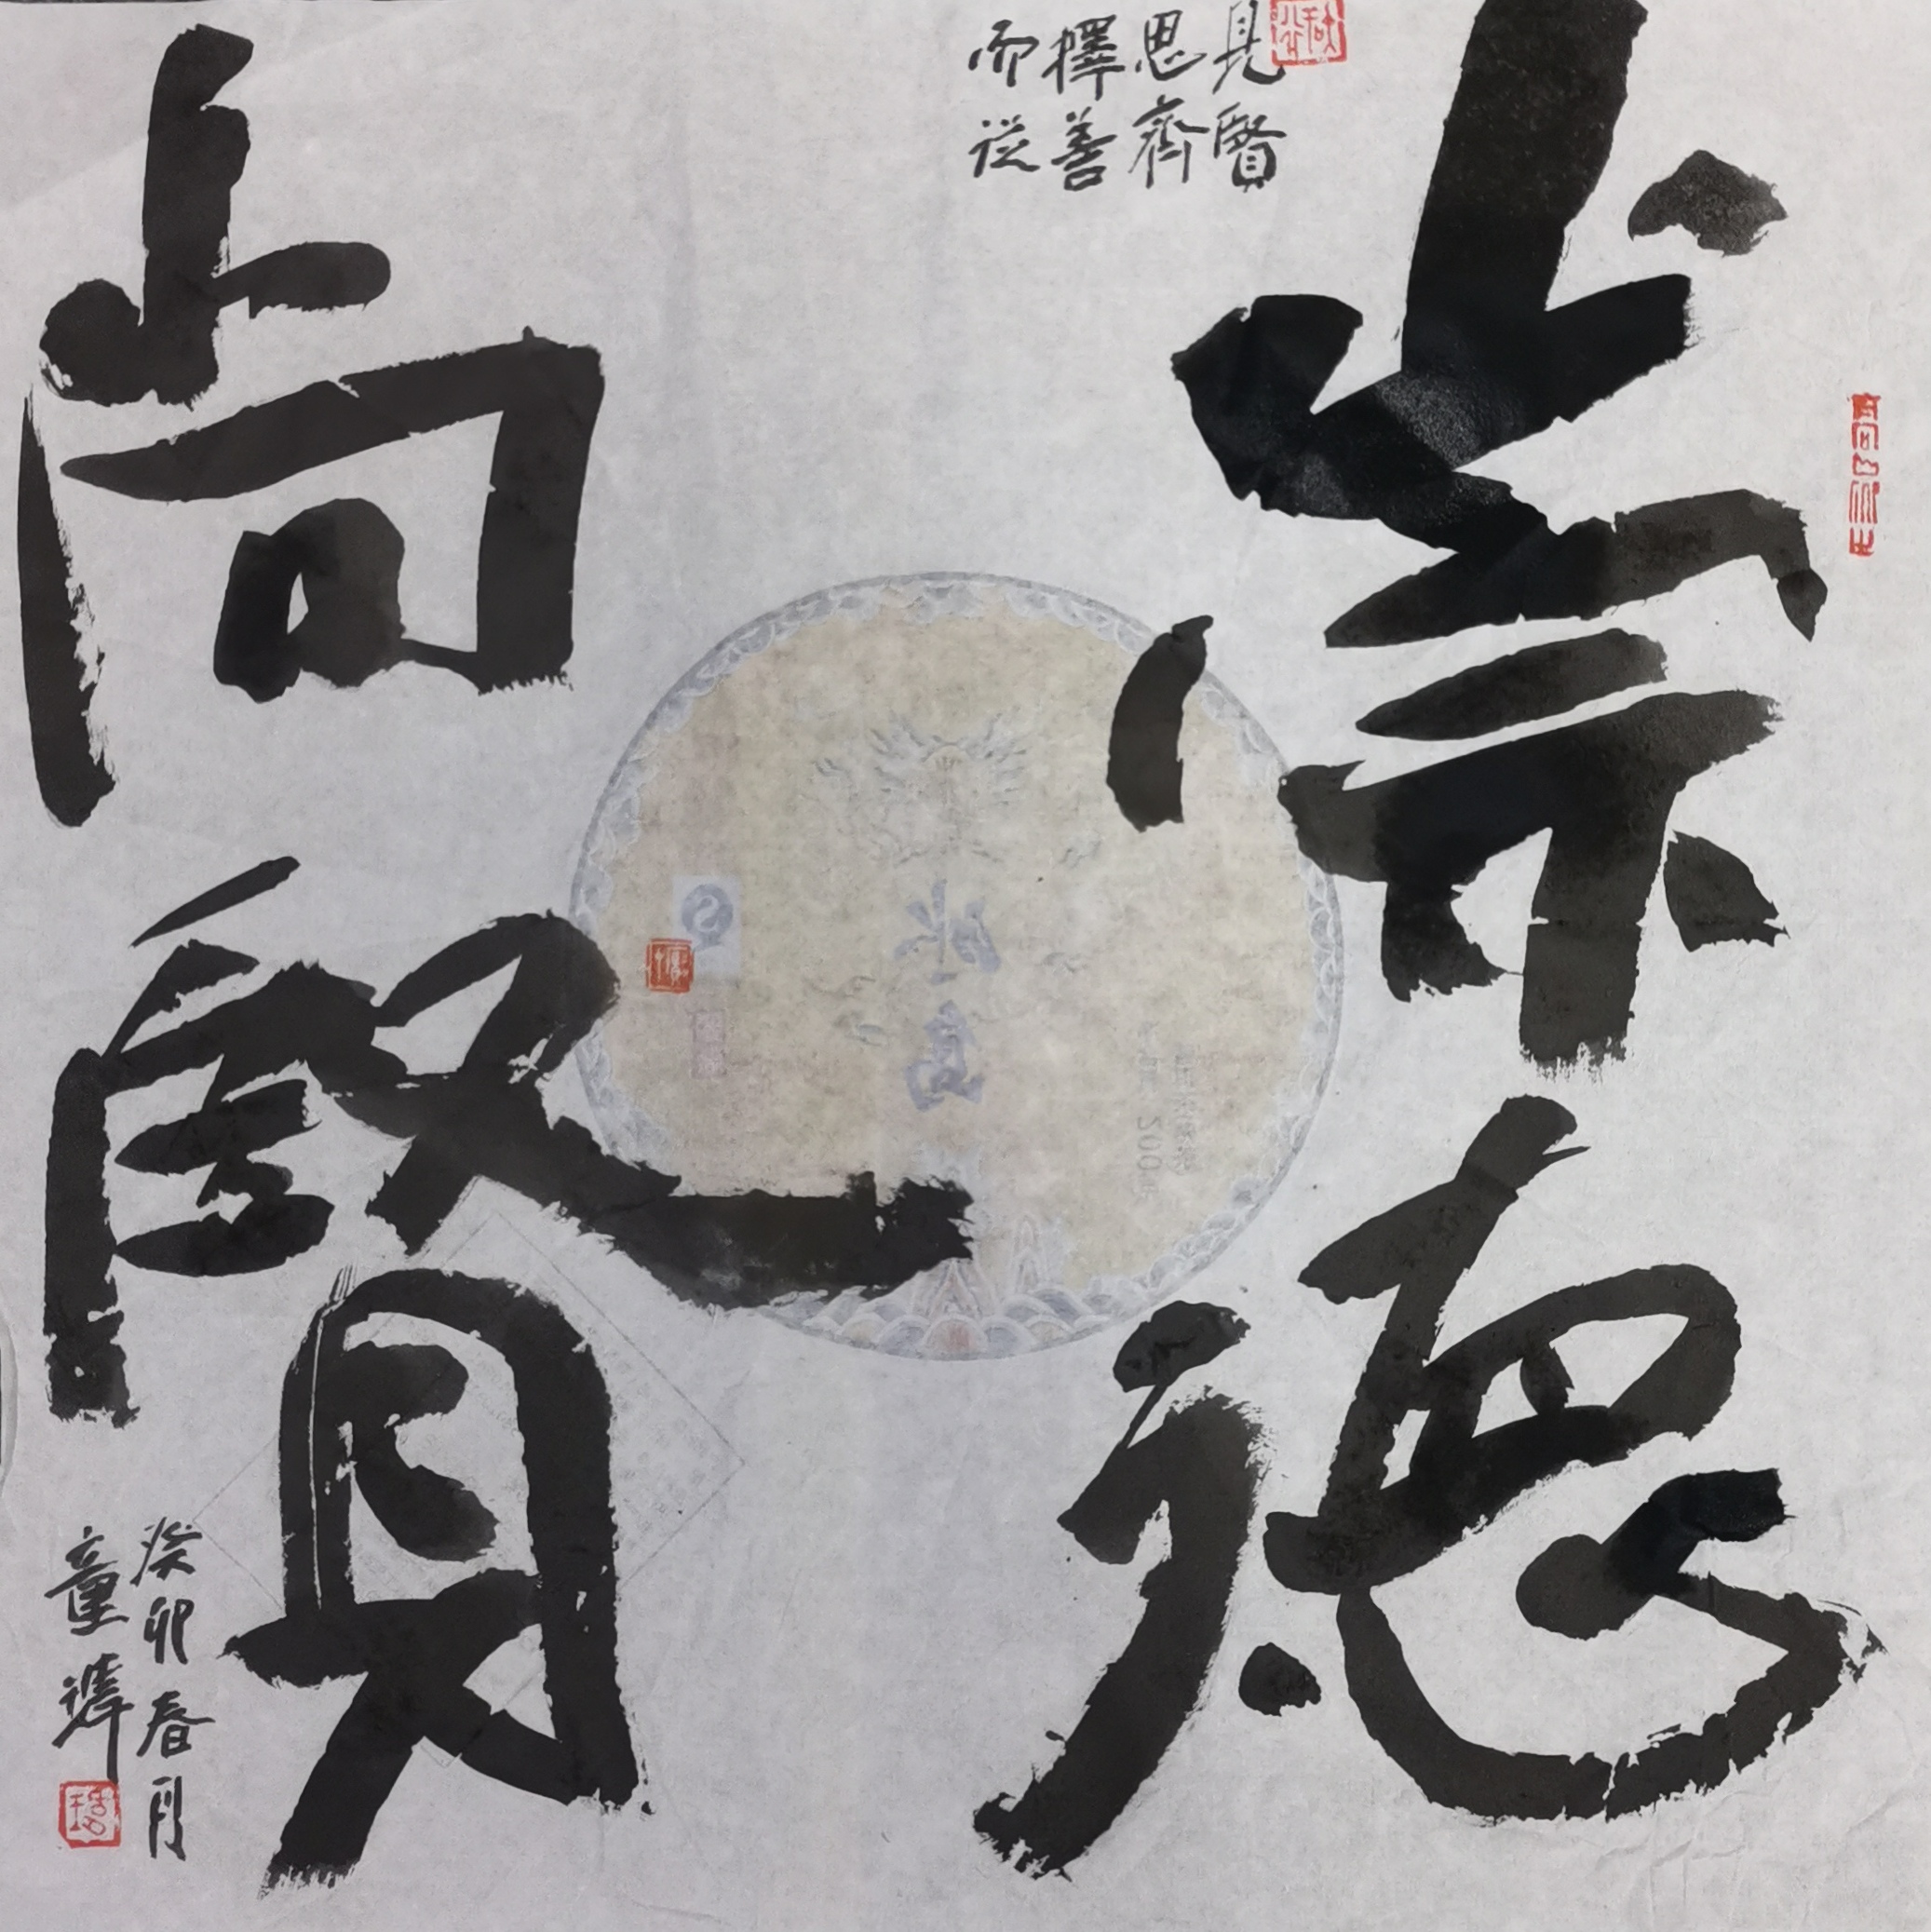 崇德
尚賢
見賢
思齊
擇善
而從
癸卯春月
童
高山仰止